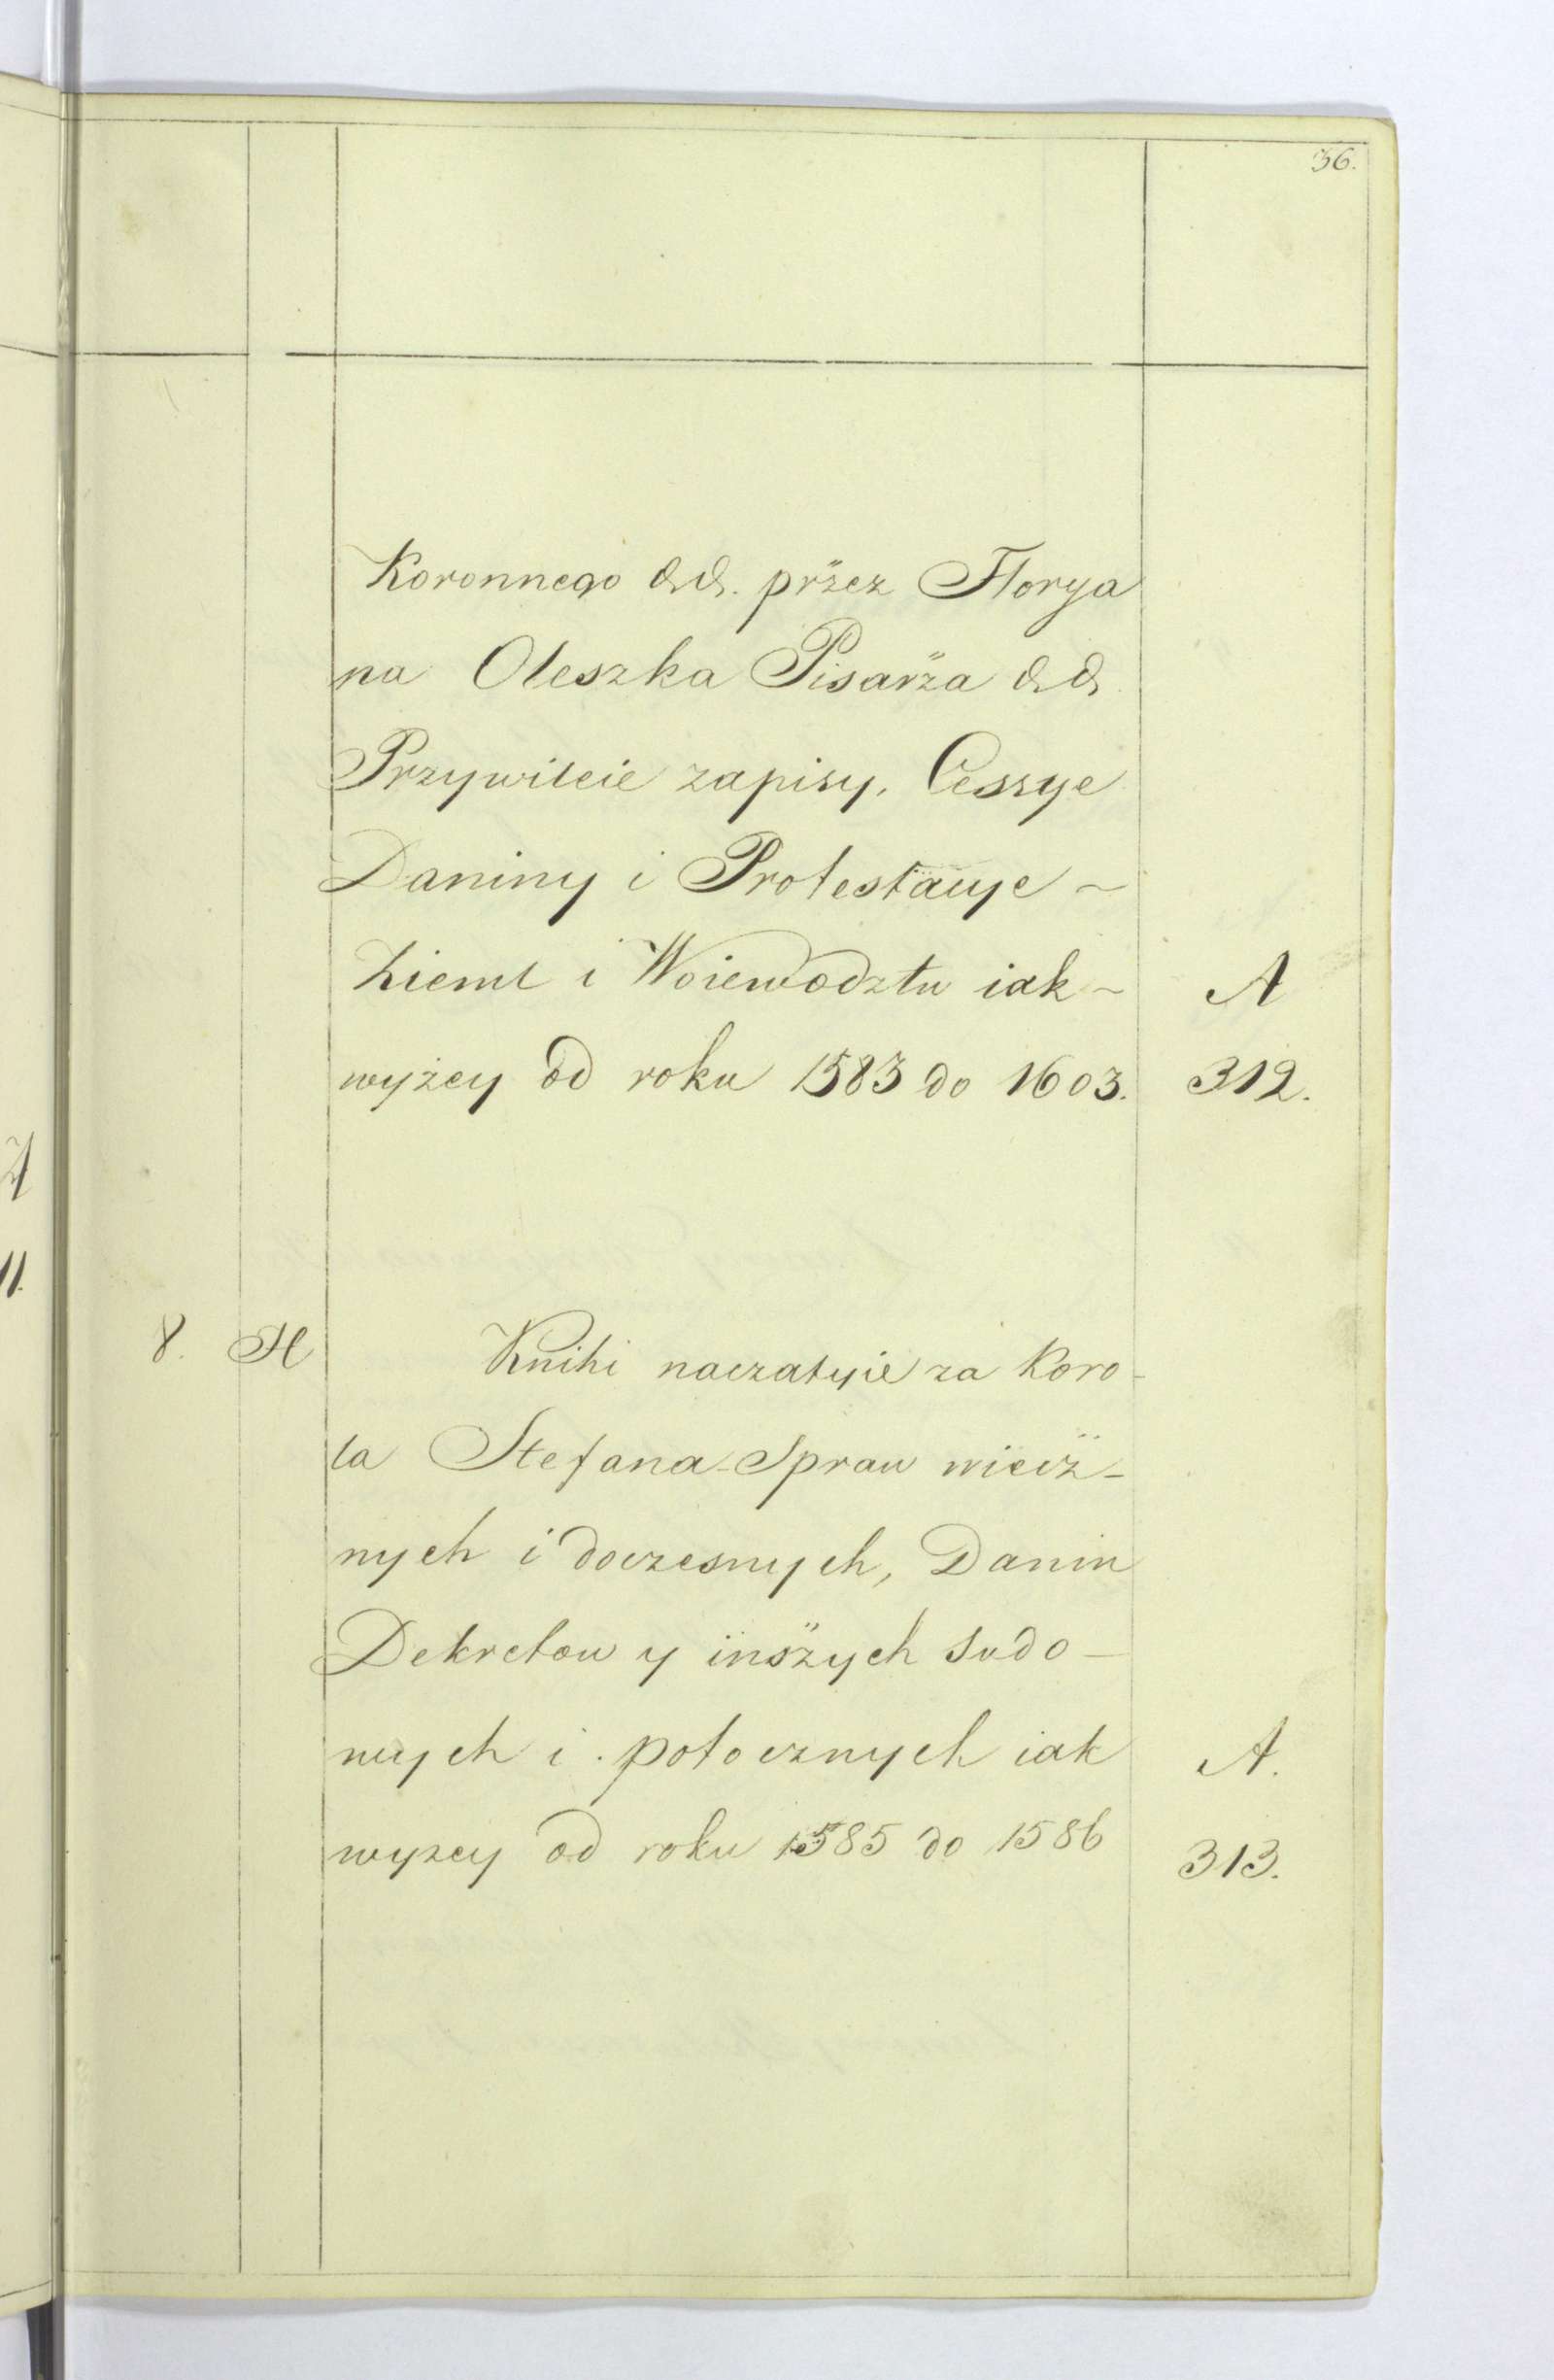 36.
Koronnego &&. przez Florya
na Oleszka Pisarza &&
Przywileie zapisy, Cessye
Daniny i Protestacye ~
Ziemi i Woiewodztw iak ~ A
wyżey od roku 1583 do 1603. 312.
8. H Knihi naczatyie za Koro-
la Stefana Spraw wiecz-
nych i doczesnych, Danin
Dekretow y inszych sudo-
wych i potocznych iak A.
wyzey od roku 1585 do 1586 313.